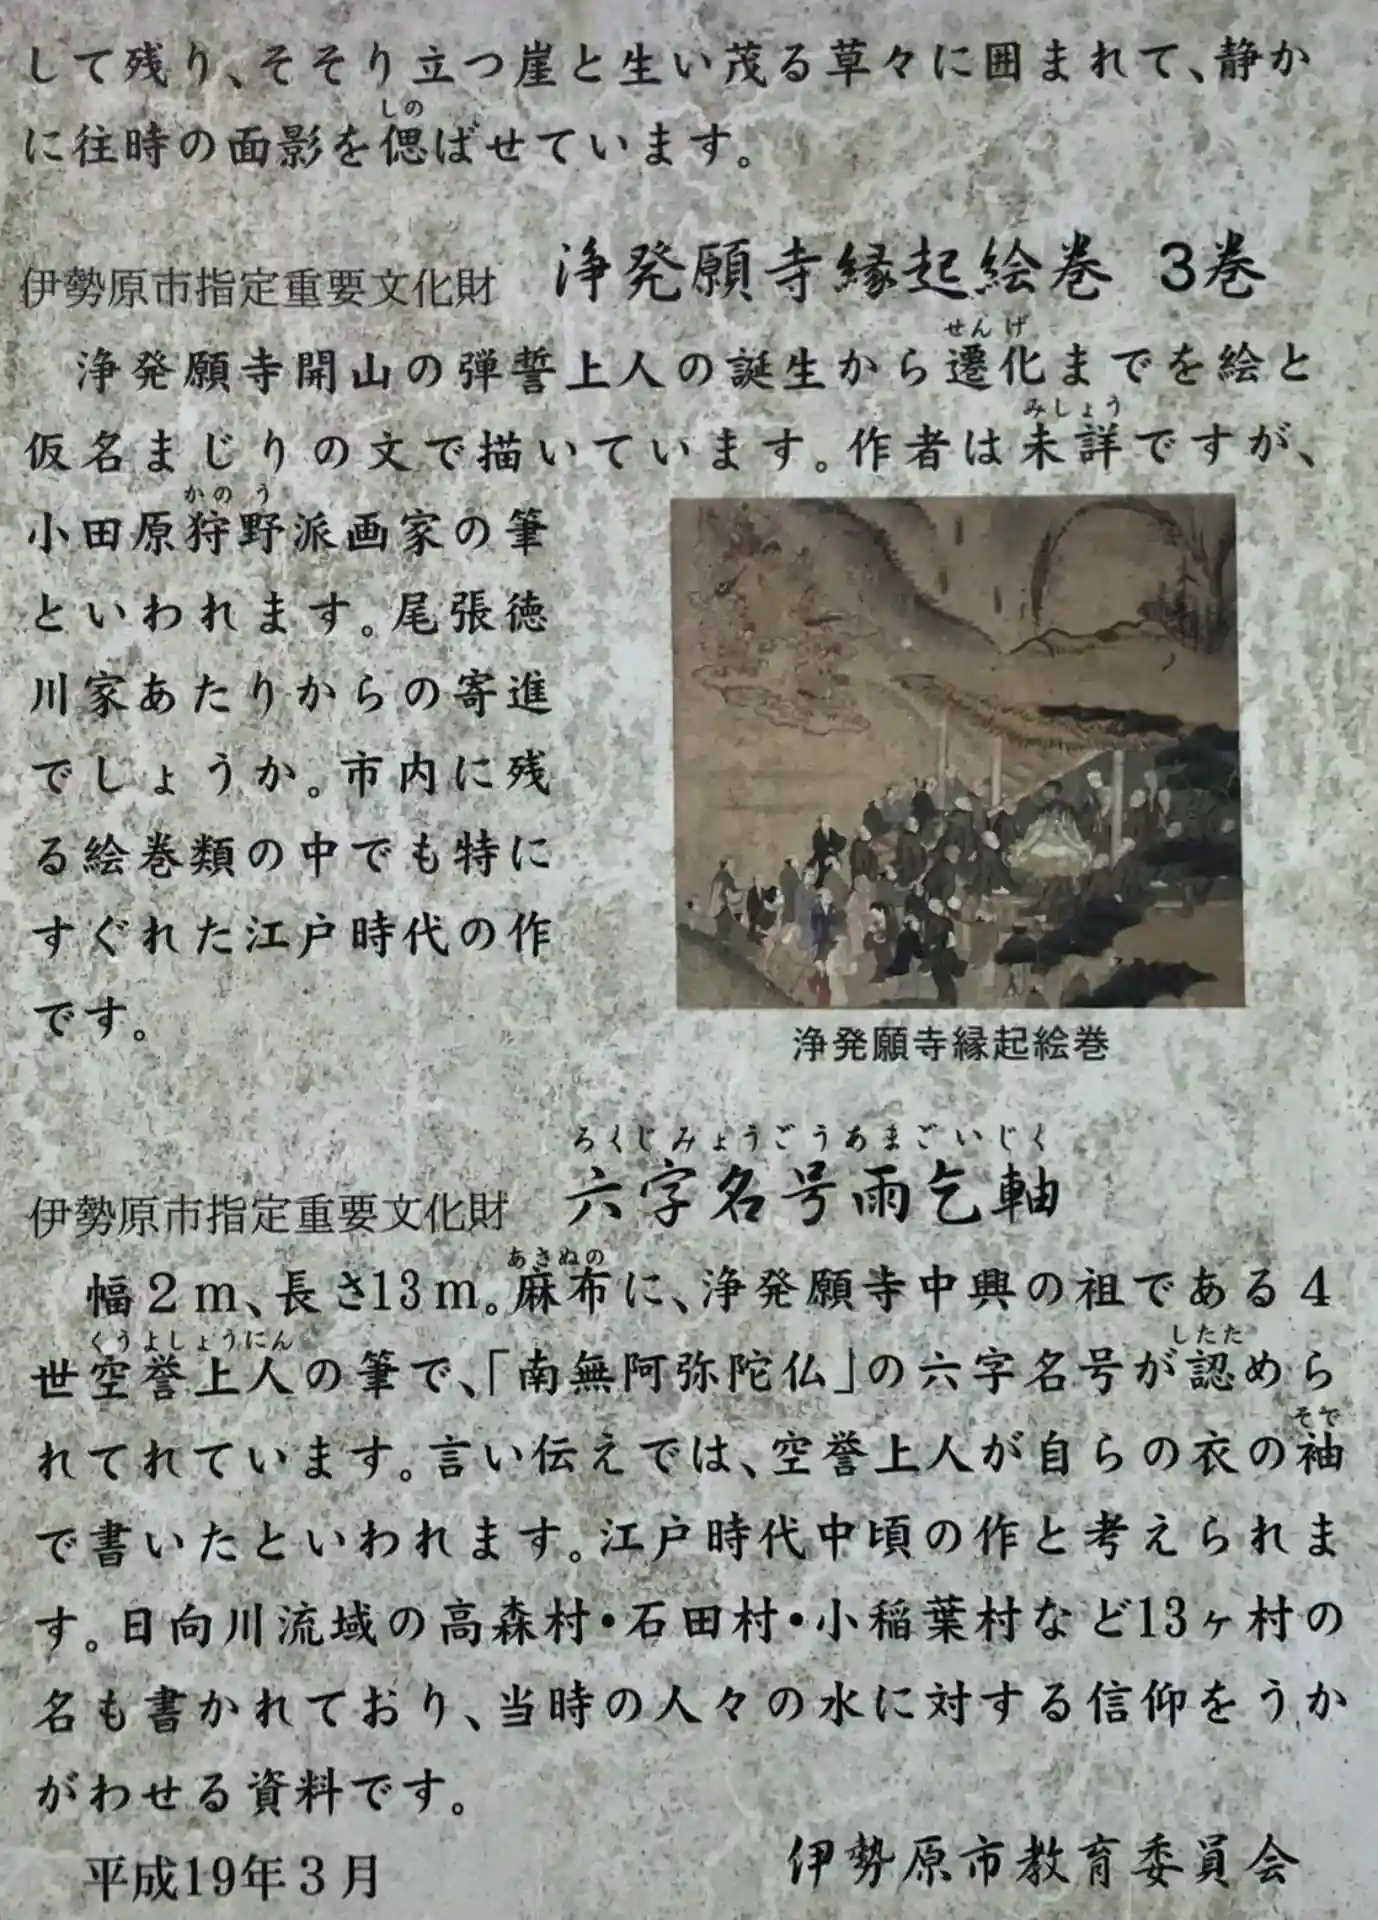 して残り、そそり立つ崖と生い茂る草々に囲まれて、静か
しの
に往時の面影を偲ばせています。
伊勢原市指定重要文化財 浄発願寺縁起絵巻 3巻
せんげ
浄発願寺開山の弾誓上人の誕生から遷化までを絵と
みしょう
仮名まじりの文で描いています。作者は未詳ですが、
かのう
小田原狩野派画家の筆
といわれます。尾張徳
川家あたりからの寄進
でしょうか。市内に残
る絵巻類の中でも特に
すぐれた江戸時代の作
です。
浄発願寺縁起絵巻
ろくじみょうごうあまごいじく
伊勢原市指定重要文化財 六字名号雨乞軸
あさぬの
幅2m、長さ13m。麻布に、浄発願寺中興の祖である4
くうよしょうにん したた
世空誉上人の筆で、「南無阿弥陀仏」の六字名号が認めら
そで
れてれています。言い伝えでは、空誉上人が自らの衣の袖
で書いたといわれます。江戸時代中頃の作と考えられま
す。日向川流域の高森村・石田村・小稲葉村など13ヶ村の
名も書かれており、当時の人々の水に対する信仰をうか
がわせる資料です。
平成19年3月 伊勢原市教育委員会